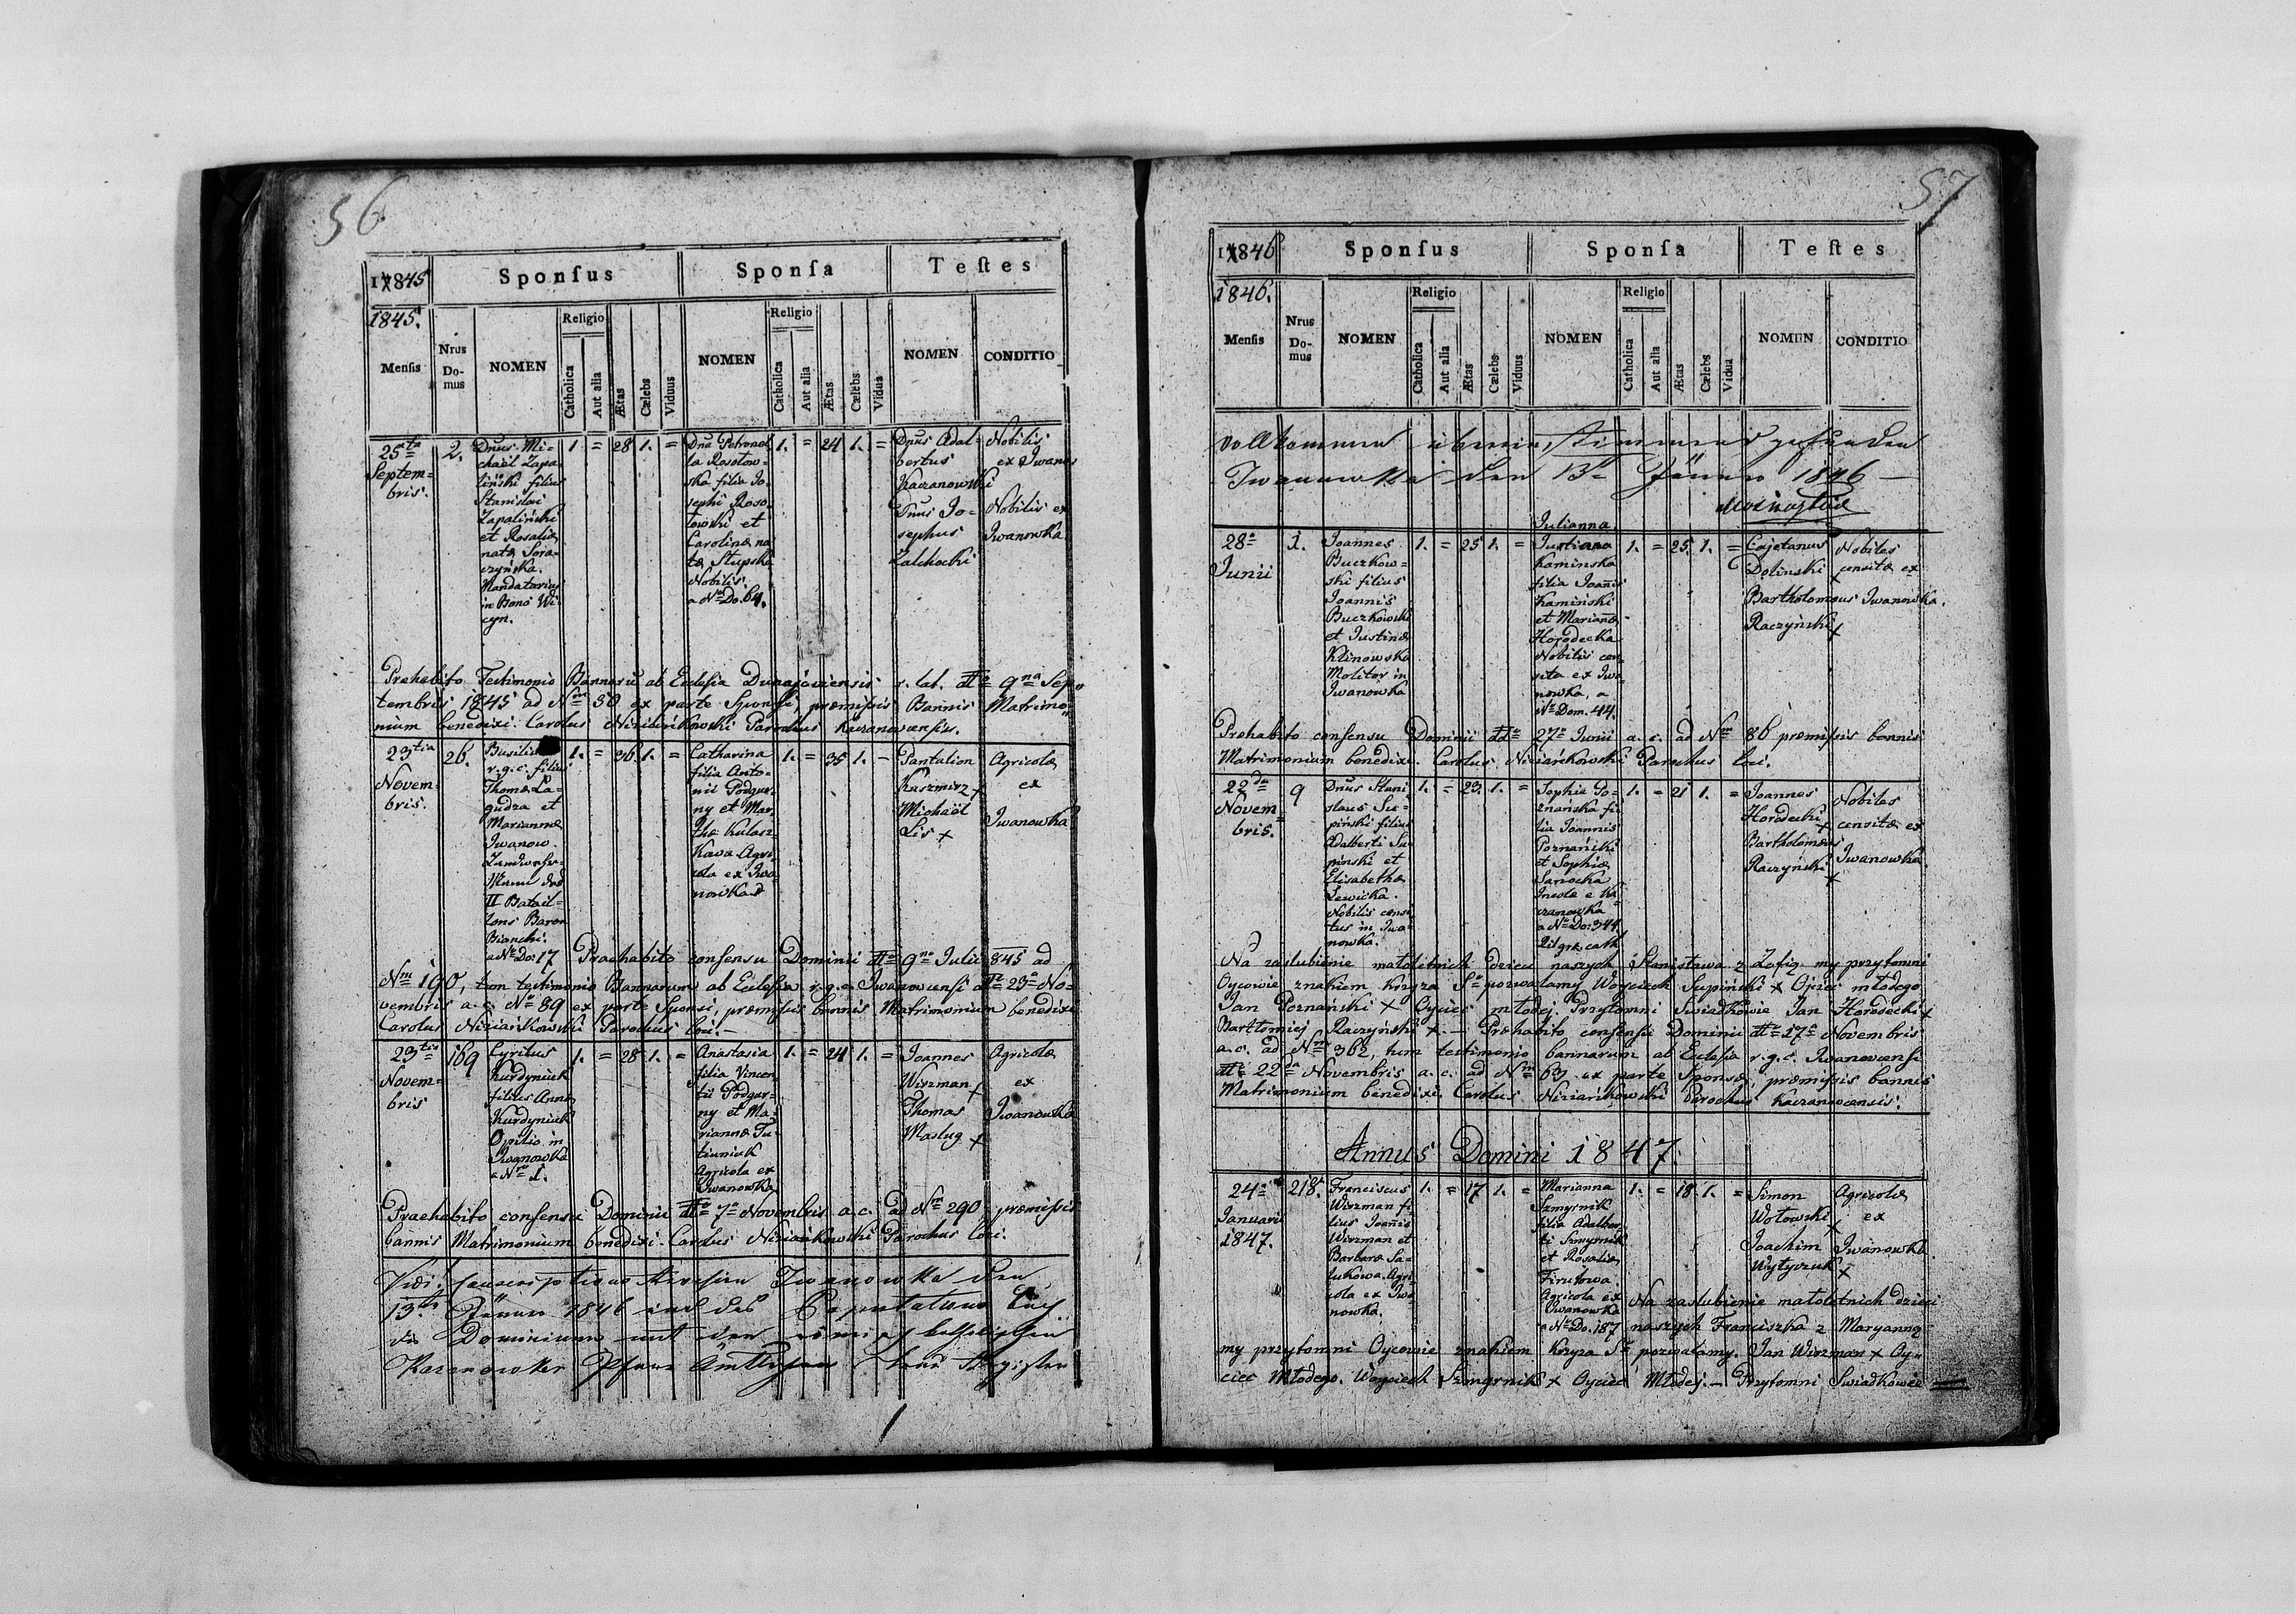 56
17845 Sponſus Sponſa Teſtes
1845.
Menſis Nrus Domus NOMEN Religio Catholica Aut alia Ætas Cælebs Viduus NOMEN Religio Catholica Aut alia Ætas Cælebs Vidua NOMEN CONDITIO
25ta
Septem=
bris.
2.
Dnus Mi=
chaël Zapa=
liński filius
Stanislai
Zapaliński
et Rosaliæ
natæ Sora=
czyńska.
Mandatarius
in Bonis Wi=
cyn.
1. = 28 1. =
Dna Petronel
la Rosołow=
ska filia Jo=
sephi Roso=
łowski et
Carolinæ na
tæ Słupska
Nobilis.
a Nro Do. 64.
1. = 24 1. =
Dnus Adal=
bertus
Kaczanowski
Dnus Jo=
sephus
Zalchocki
Nobilis
ex Iwano
Nobilis ex
Iwanowka.
Praehabito Testimonio Bannorū ab Ecclesia Dunajoviensis r. lat. dto 9na Sep=
tembris 1845 ad Nm 30 ex parte Sponsi, præmissis Bannis Matrimo=
nium benedixi. Carolus Niziańkowski Parochus Kaczanovensis.
23tia
Novem=
bris.
26.
Basilius
r. g. c. filius
Thomæ Ła=
gudza et
Mariannæ
Iwanow.
Landwehr=
Mann des
II Batail=
lons Baron
Bianchi.
a Nro Do: 17
1. = 36 1. =
Catharina
filia Anto=
nii Podgur=
ny et Mar=
thæ Kulasz=
kawa Agri=
cola ex Iwa
nowka
1. = 35 1. -
Pantalion
Kuszmirz +
Michaël
Lis +
Agricolæ
ex
Iwanowka
Praehabito consensu Dominii dto 9na Julii 845 ad
Nm 190, tum testimonio Bannorum ab Ecclesia r. g. c. Iwanovensi dto 23a No=
vembris a. c. Nro 89 ex parte Sponsi, præmissis bannis Matrimonium benedixi
Carolus Niziańkowski Parochus loci. —
23tia
Novem=
bris
169
Cyrilus
Kurdyniuk
filius Annæ
Kurdyniuk
Opilio in
Iwanowka
a Nro 1.
1. = 28 1. =
Anastasia
filia Vincen=
tii Podgur=
ny et Ma=
riannæ Tu=
tiuniuk
Agricola ex
Iwanowka
1. = 24 1. =
Joannes
Wirzman +
Thomas
Maslug +
Agricolæ
ex
Iwanowka
Praehabito consensu Dominii dto 7a Novembris a. c. ad Nm 290 præmissis
bannis Matrimonium benedixi. Carolus Niziańkowski Parochus loci.
Vidi. Conscriptions Revision Iwanowka den
13ten Jänner 1846 und das
Dominium und den
Pfarr
57
17846 Sponſus Sponſa Teſtes
1846.
Menſis Nrus Domus NOMEN Religio Catholica Aut alia Ætas Cælebs Viduus NOMEN Religio Catholica Aut alia Ætas Cælebs Vidua NOMEN CONDITIO
vollkommen übereinstimmend gefunden
Iwanowka den 13t Jänner 1846 —
28a
Junii
1.
Joannes
Buczkow=
ski filius
Joannis
Buczkowski
et Justinæ
Klinowska
Molitor in
Iwanowka
1. = 25 1. =
Julianna
Kaminska
filia Joañis
Kamiński
et Mariannæ
Horodecka
Nobilis cen=
sita ex Iwa
nowka, a
Nro Dom. 44.
1. = 25. 1. =
Cajetanus
Dolinski +
Bartholomeus
Raczyński +
Nobiles
censitæ ex
Iwanowka.
Præhabito consensu Dominii ddo 27a Junii a. c. ad Nm 86 præmissis bannis
Matrimonium benedixi. Carolus Niziańkowski Parochus loci.
22da
Novem=
bris.
9
Dnus Stani
slaus Su=
piński filius
Adalberti Su=
pinski et
Elisabethæ
Lewicka.
Nobilis censi
tus in Iwa=
nowka.
1. = 23. 1. =
Sophia Po=
znańska fi=
lia Joannis
Poznański
et Sophiæ
Sanocka
Incolæ e Ka=
czanowka
a Nro Do: 344
Rit. gr. cath.
1. = 21 1. =
Joannes
Horodecki +
Bartholomæus
Raczyński +
Nobiles
censitæ ex
Iwanowka
Na zaslubienie małoletnich dzieci naszych Stanisława z Zofią my przytomni
Oycowie znakiem krzyza Sgo pozwalamy Woyciech Supiński + Ojciec młodego
Jan Poznański + Oyciec młodej. Przytomni Swiadkowie Jan Horodecki +
Bartłomiej Raczyński +. — Præhabito consensu Dominii dto 17a Novembris
a. c. ad Nm 362, tum testimonio bannorum ab Ecclesia r. g. c. Iwanovensi
dto 22a Novembris a. c. ad Nm 63 ex parte Sponsæ, præmissis bannis
Matrimonium benedixi. Carolus Niziańkowski Parochus Kaczanovensis.
Annus Domini 1847.
24a
Januarii
1847.
218.
Franciscus
Wirzman fi=
lius Joañis
Wirzman et
Barbaræ Sa=
lukowa. Agri=
cola ex Iwa
nowka.
1. = 17 1. =
Marianna
Szmyrnik
filia Adalber
ti Szmyrnik
et Rosaliæ
Firutowa.
Agricola ex
Iwanowka
a Nro Do. 187
1. = 18 1. =
Simon
Wołowski +
Joachim
Wytyczuk +
Agricolæ
ex
Iwanowka.
Na zaslubienie małoletnich dzieci
naszych Franciszka z Maryanną
my przytomni Oycowie znakiem krzyza Sgo pozwalamy. Jan Wirzman + Oy=
ciec Młodego. Woyciech Szmyrnik + Oyciec Młodej. — Przytomni Swiadkowie